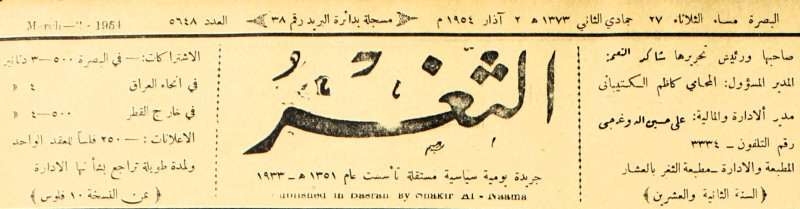 البصرة مساء الثلاثاء ٢٧ جمادي الثاني ١٣٧٣ ه ٢ آذار ١٩٥٤ م مسجلة بدائرة البريد رقم ٣٨ العدد ٥٦٤٨ March-2-1954
صاحبها ورئيس تحريرها شاكر النعمة
المدير المسؤول: المحامي كاظم الكتيباني
مدير الادارة والمالية: علي حسين الدوغه جي
رقم التلفون ـ ٣٣٣٤
المطبعة والادارة ـ مطبعة الثغر بالعشار
﴿ السنة الثانية والعشرين ﴾
الثغر
جريدة يومية سياسية مستقلة تأسست عام ١٣٥١ هـ ـ ١٩٣٣
Published in Basrah By Shakir Al-Naama
الاشتراكات: ـ في البصرة ٥٠٠ـ٣ دنانير
في انحاء العراق ٤ »
في خارج القطر ٥٠٠ـ٤ »
الاعلانات: ـ ٢٥٠ فلساً للعقد الواحد
ولمدة طويلة تراجع بشأنها الادارة
﴿ ثمن النسخة ١٠ فلوس ﴾